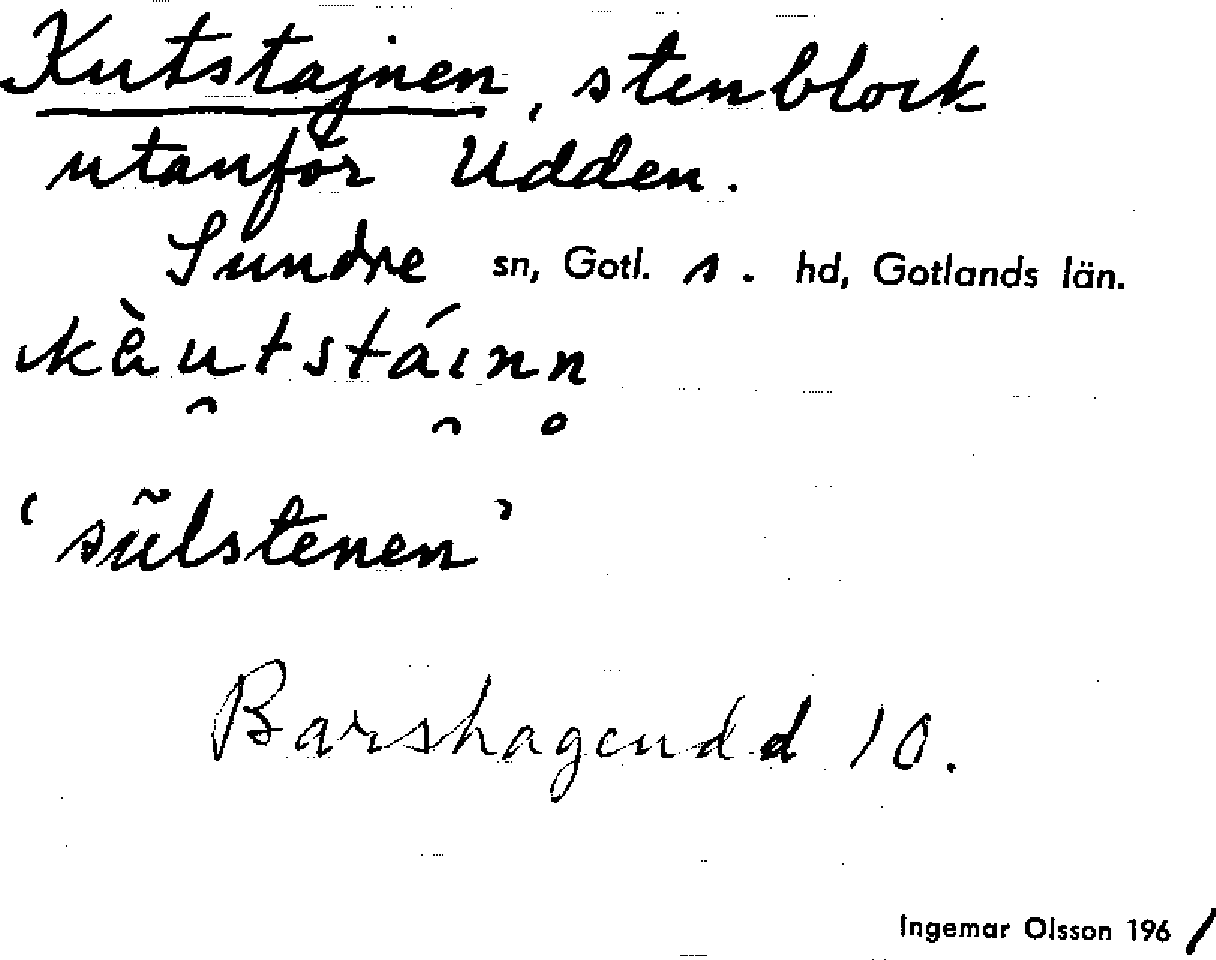 Kutstajnen, stenblock
utanför Udden.
Sundre sn, Gotl. s. hd, Gotlands län.
kàu̯tstái̯nn̥
'sälstenen'
Barshageudd 10.
Ingemar Olsson 1961